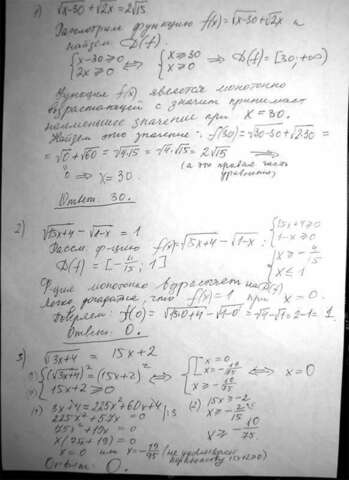 1) √x-30 + √2x = 2√15
Рассмотрим функцию f(x) = √x-30 + √2x и
найдём D(f).
{x-30 ≥ 0 ⇔ {x ≥ 30 ⇒ D(f) = [30; +∞)
{2x ≥ 0 {x ≥ 0
Функция f(x) является монотонно
возрастающей а значит принимает
наименьшее значение при x = 30.
Найдём это значение: f(30) = √30-30 + √2·30 =
= √0 + √60 = √4·15 = √4·√15 = 2√15 ⇒
(а это правая часть
уравнения)
⇒ x = 30.
Ответ: 30.
2) √15x+4 - √1-x = 1
Рассм. ф-цию f(x) = √15x+4 - √1-x : {15x+4 ≥ 0
1-x ≥ 0
D(f) = [-4/15; 1] {x ≥ -4/15
x ≤ 1
Ф-ция монотонно возрастает на D(f)
легко догадаться, что f(x) = 1 при x = 0.
Проверяем: f(0) = √15·0+4 - √1-0 = √4 - √1 = 2-1 = 1.
Ответ: 0.
3) √3x+4 = 15x+2
(1) {(√3x+4)² = (15x+2)² ⇔ {[x = 0 ⇔ x = 0
(2) {15x+2 ≥ 0
(1) 3x+4 = 225x²+60x+4 (2) 15x ≥ -2
225x² + 57x = 0 |:3 x ≥ -2/15
75x² + 19x = 0 x ≥ -10/75
x(75x+19) = 0
x = 0 или x = -19/75 (не удовлетворяет
Ответ: 0.